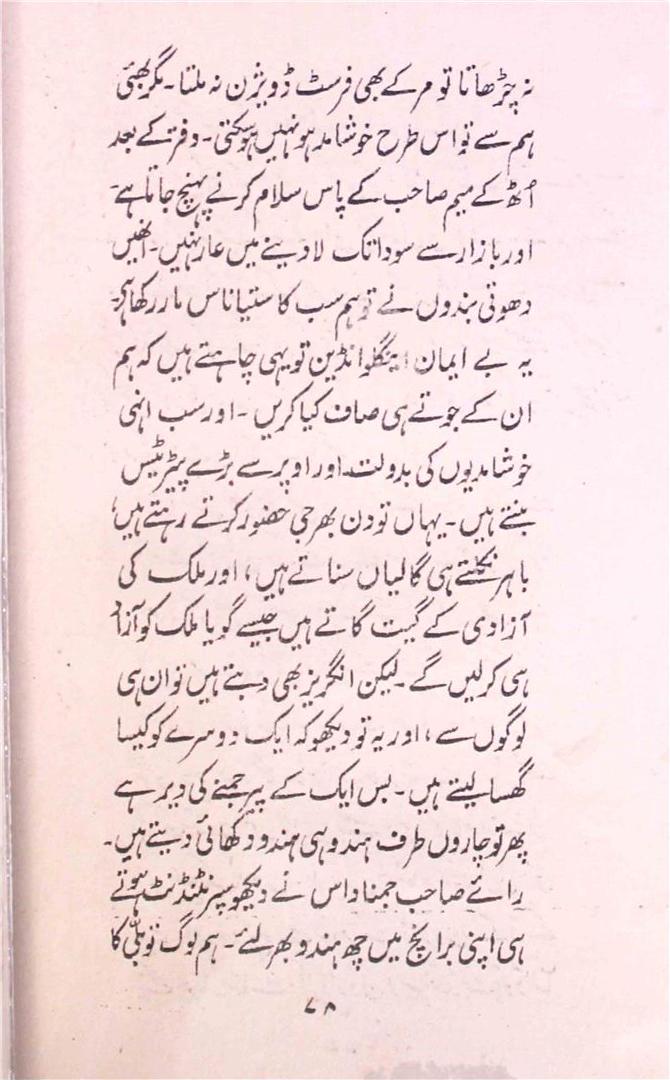 نہ چڑھاتا تو مر کے بھی فرسٹ ڈویژن نہ ملتا۔ مگر بھئی
ہم سے تو اس طرح خوشامد ہو نہیں ہوسکتی۔ دفتر کے بعد
اُٹھ کے میم صاحب کے پاس سلام کرنے پہنچ جاتا ہے۔
اور بازار سے سودا تک لا دینے میں عار نہیں۔ انھیں
دھوتی بندوں نے تو ہم سب کا ستیاناس مار رکھا ہے۔
یہ بے ایمان اینگلو انڈین تو یہی چاہتے ہیں کہ ہم
ان کے جوتے ہی صاف کیا کریں۔ اور سب انہی
خوشامدیوں کی بدولت۔ اور اوپر سے بڑے پیٹریٹس
بنتے ہیں۔ یہاں تو دن بھر جی حضور کرتے رہتے ہیں،
باہر نکلتے ہی گالیاں سناتے ہیں، اور ملک کی
آزادی کے گیت گاتے ہیں جیسے گویا ملک کو آزاد
ہی کرلیں گے۔ لیکن انگریز بھی دبتے ہیں تو ان ہی
لوگوں سے، اور یہ تو دیکھو کہ ایک دوسرے کو کیسا
گھسا لیتے ہیں۔ بس ایک کے پیر جمنے کی دیر ہے
پھر تو چاروں طرف ہندو ہی ہندو دکھائی دیتے ہیں۔
رائے صاحب جمنا داس نے دیکھو سپرنٹنڈنٹ ہوتے
ہی اپنی برانچ میں چھ ہندو بھر لئے۔ ہم لوگ تو بلّی کا
۷۸